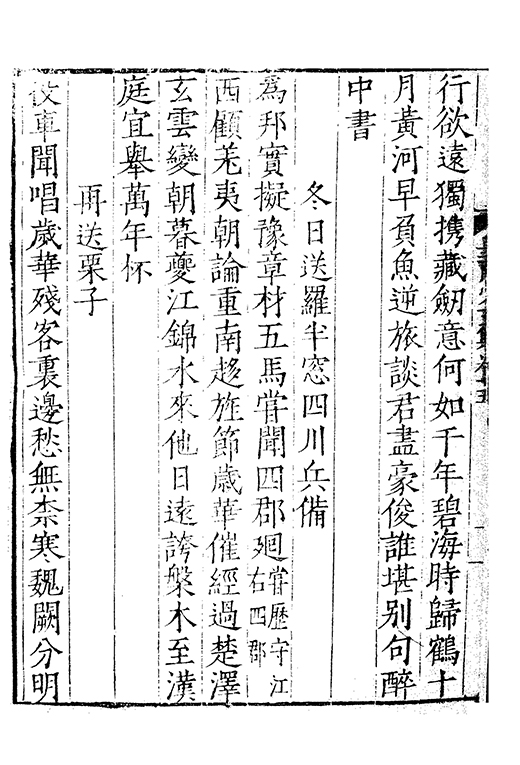 行欲遠獨携藏劒意何如千年碧海時歸鶴十
月黃河早負魚逆旅談君盡豪俊誰堪别句醉
中書
冬日送羅半窓四川兵備
爲邦實擬豫章材五馬甞聞四郡廻甞歷守江右四郡
西顧羌夷朝論重南趍旌節歳華催經過楚澤
玄雲變朝暮夔江錦水來他日遠誇槃木至漢
庭宜舉萬年杯
再送栗子
車聞唱歳華殘客裏邊愁無柰寒魏闕分明